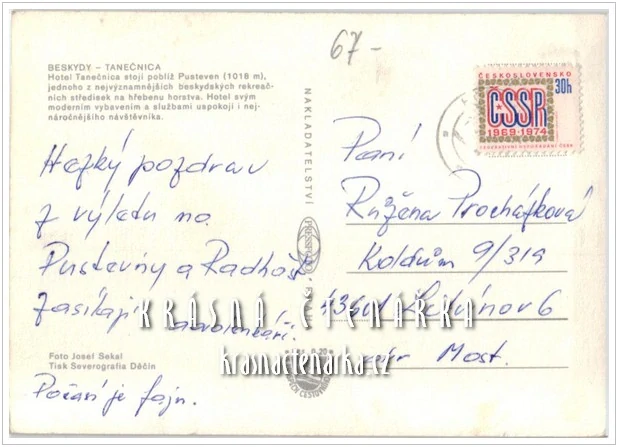 67-
BESKYDY – TANEČNICA
Hotel Tanečnica stojí poblíž Pusteven (1018 m),
jednoho z nejvýznamnějších beskydských rekreač-
ních středisek na hřebenu horstva. Hotel svým
moderním vybavením a službami uspokojí i nej-
náročnějšího návštěvníka.
ČESKOSLOVENSKO
30h
ČSSR
1969-1974
NAKLADATELSTVÍ
PRESSFOTO
Hezký pozdrav
z výletu na
Pustevny a Radhošť
zasílají
Paní
Růžena Procházková
Koldům 9/319
43601 Litvínov 6
Most.
KRÁSNÁ ČTENÁRKA
krasnactenarka.cz
Foto Josef Sekal
Tisk Severografia Děčín
Počasí je fajn.